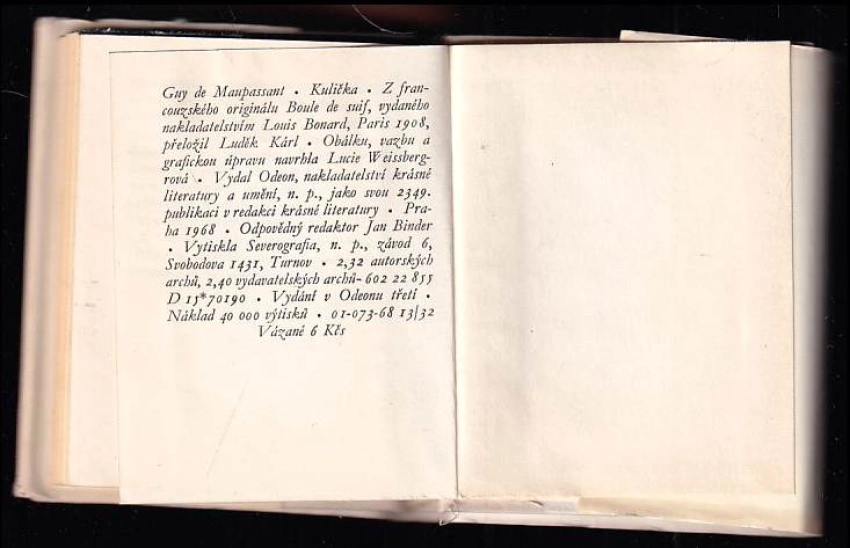 Guy de Maupassant • Kulička • Z fran-
couzského originálu Boule de suif, vydaného
nakladatelstvím Louis Bonard, Paris 1908,
přeložil Luděk Kárl • Obálku, vazbu a
grafickou úpravu navrhla Lucie Weissberg-
rová • Vydal Odeon, nakladatelství krásné
literatury a umění, n. p., jako svou 2349.
publikaci v redakci krásné literatury • Pra-
ha 1968 • Odpovědný redaktor Jan Binder
• Vytiskla Severografia, n. p., závod 6,
Svobodova 1431, Turnov • 2,32 autorských
archů, 2,40 vydavatelských archů - 602 22 855
D 15*70190 • Vydání v Odeonu třetí •
Náklad 40 000 výtisků • 01-073-68 13/32
Vázané 6 Kčs